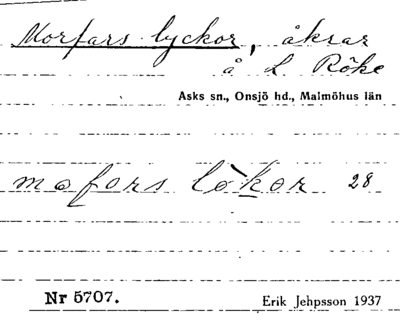 Morfars lyckor, åkrar
å L. Röke
Asks sn., Onsjö hd., Malmöhus län
mofors lòkor 28
Nr 5707.
Erik Jehpsson 1937